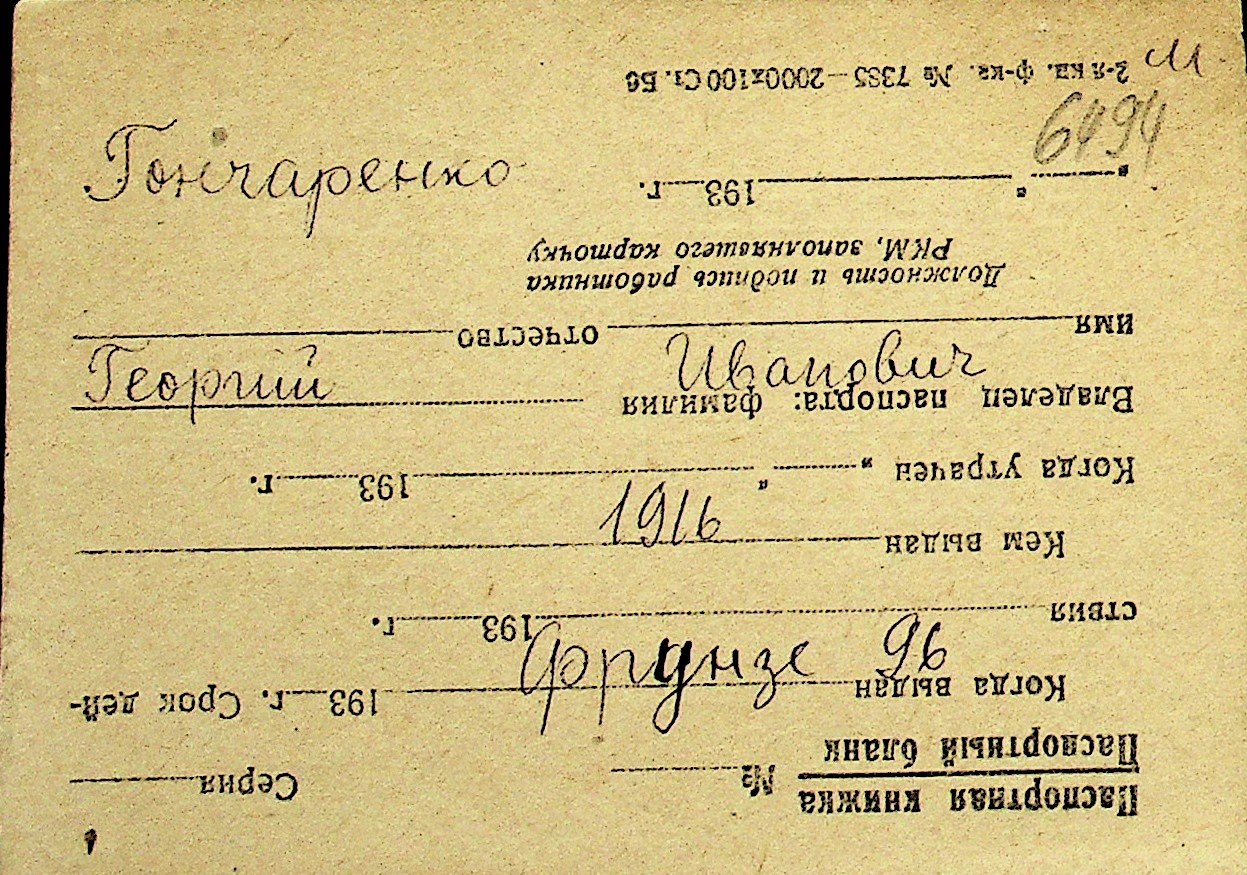 М
Гончаренко
Георгий Иванович
1916
Фрунзе 96
Паспортная книжка № Серия
Паспортный бланк
Когда выдан 193 г. Срок дей-
ствия 193 г.
Кем выдан
Когда утрачен " " 193 г.
Владелец паспорта: фамилия
имя отчество
Должность и подпись работника
РКМ, заполнявшего карточку
" " 193 г.
№ 7385—2000х100